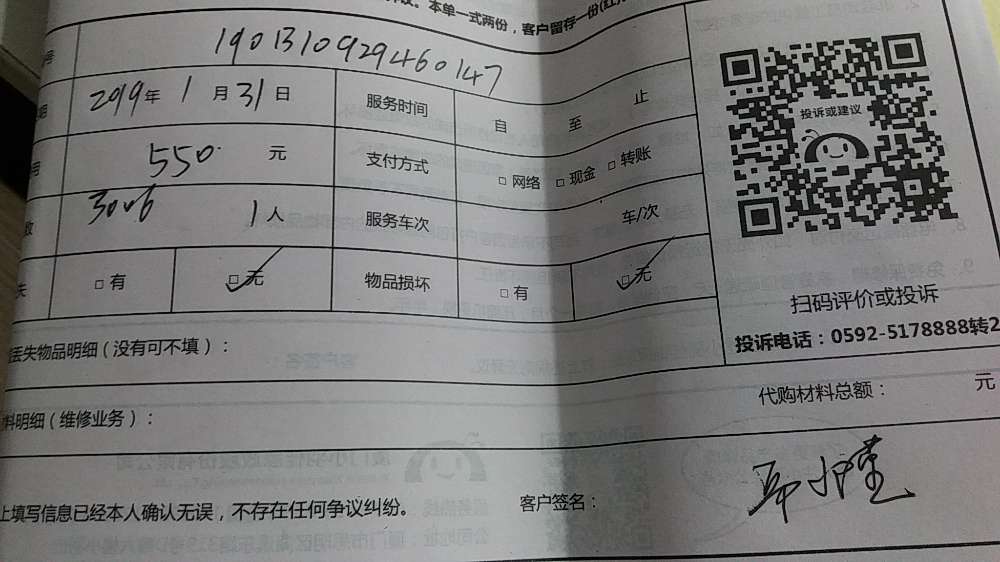 本单一式两份，客户留存一份(红
号 190131092946 0147
期 2019年1月31日 服务时间 自 至 止
550 元 支付方式 □网络 □现金 □转账
数 3006 1人 服务车次 车/次
失 □有 □无 物品损坏 □有 □无
投诉或建议
扫码评价或投诉
投诉电话：0592-5178888转2
丢失物品明细（没有可不填）：
料明细（维修业务）：
代购材料总额： 元
上填写信息已经本人确认无误，不存在任何争议纠纷。
客户签名：